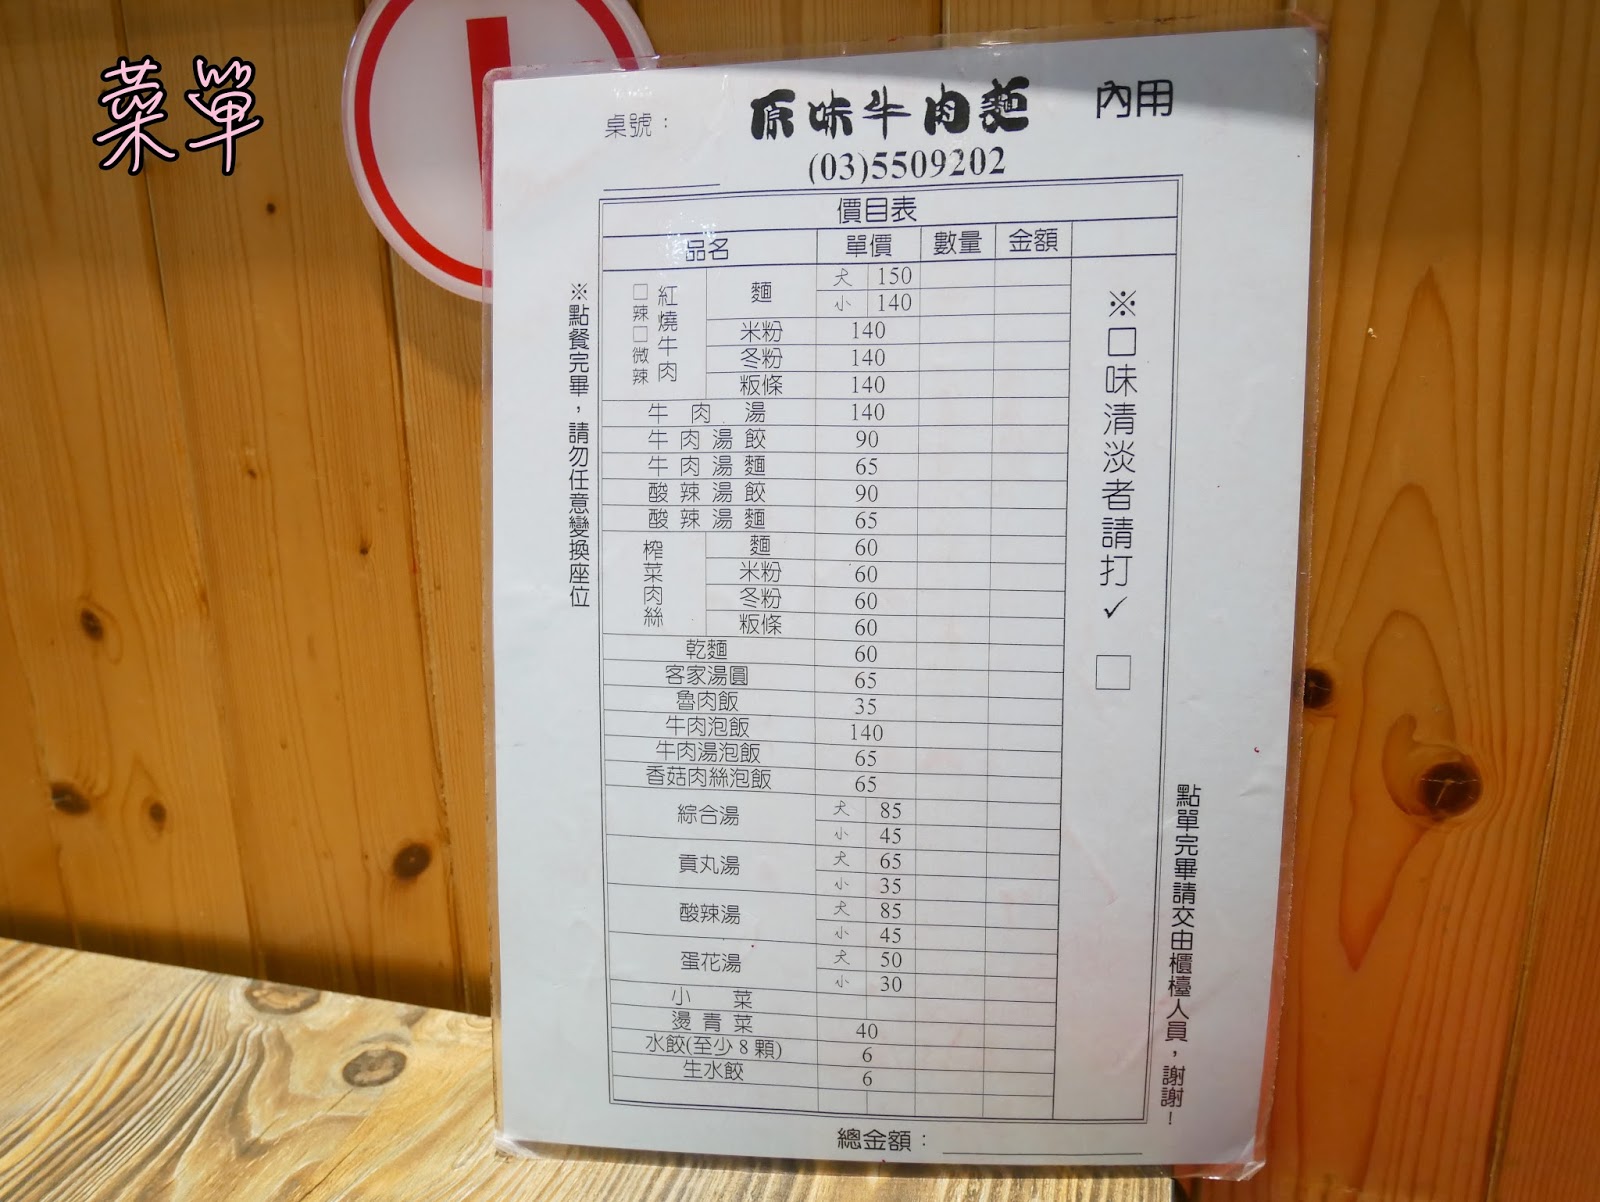 菜單
桌號：
原味牛肉麵
內用
(03)5509202
價目表
品名 單價 數量 金額
紅燒牛肉
□辣□微辣
麵 大 150
小 140
米粉 140
冬粉 140
粄條 140
牛肉湯 140
牛肉湯餃 90
牛肉湯麵 65
酸辣湯餃 90
酸辣湯麵 65
榨菜肉絲
麵 60
米粉 60
冬粉 60
粄條 60
乾麵 60
客家湯圓 65
魯肉飯 35
牛肉泡飯 140
牛肉湯泡飯 65
香菇肉絲泡飯 65
綜合湯 大 85
小 45
貢丸湯 大 65
小 35
酸辣湯 大 85
小 45
蛋花湯 大 50
小 30
小菜
燙青菜 40
水餃(至少8顆) 6
生水餃 6
總金額：
※點餐完畢，請勿任意變換座位
※口味清淡者請打✓ □
點單完畢請交由櫃檯人員，謝謝！